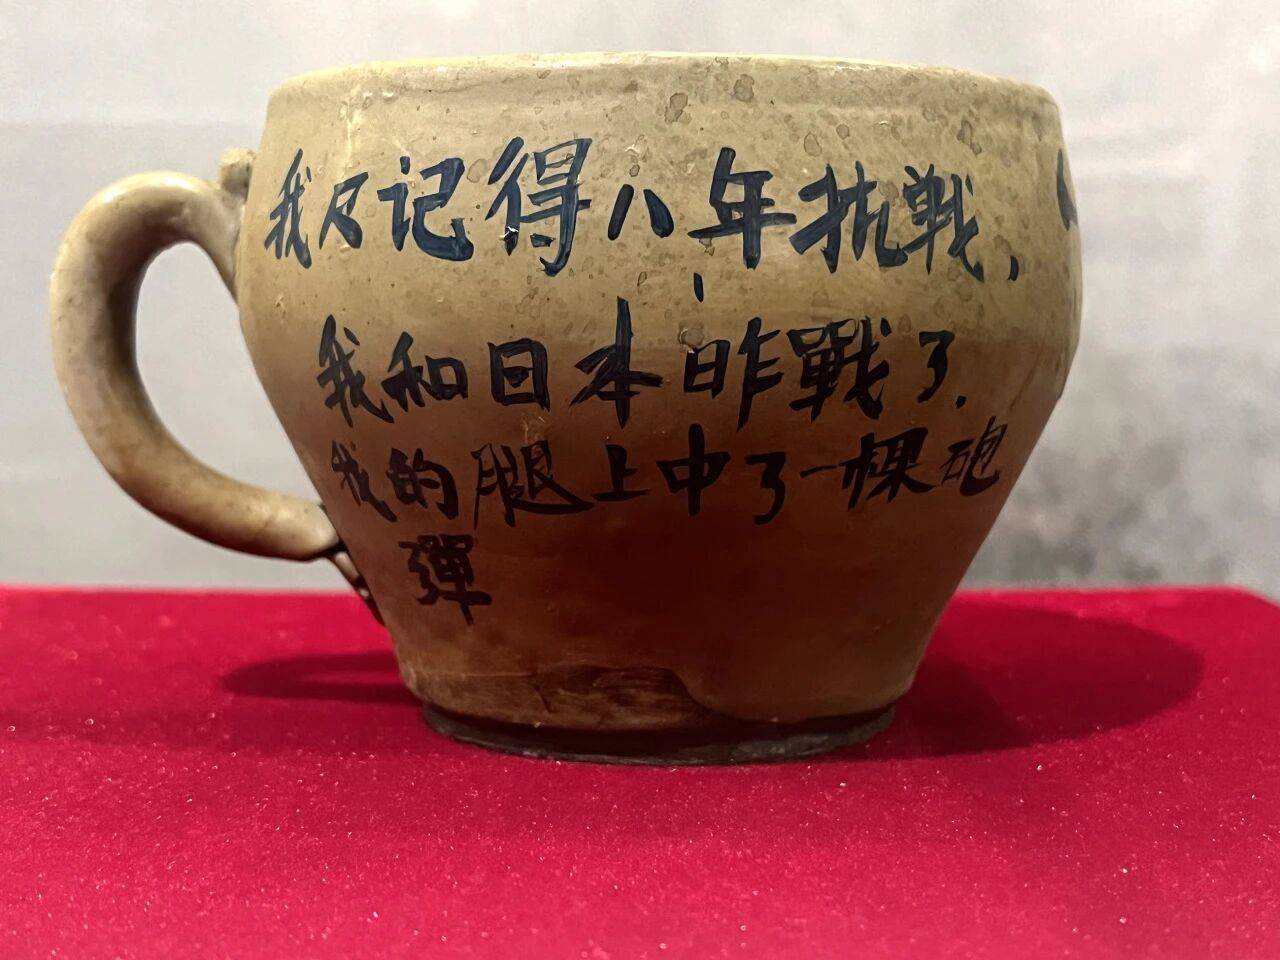 我只记得八年抗戰，
我和日本昨戰了．
我的腿上中了一棵砲
彈